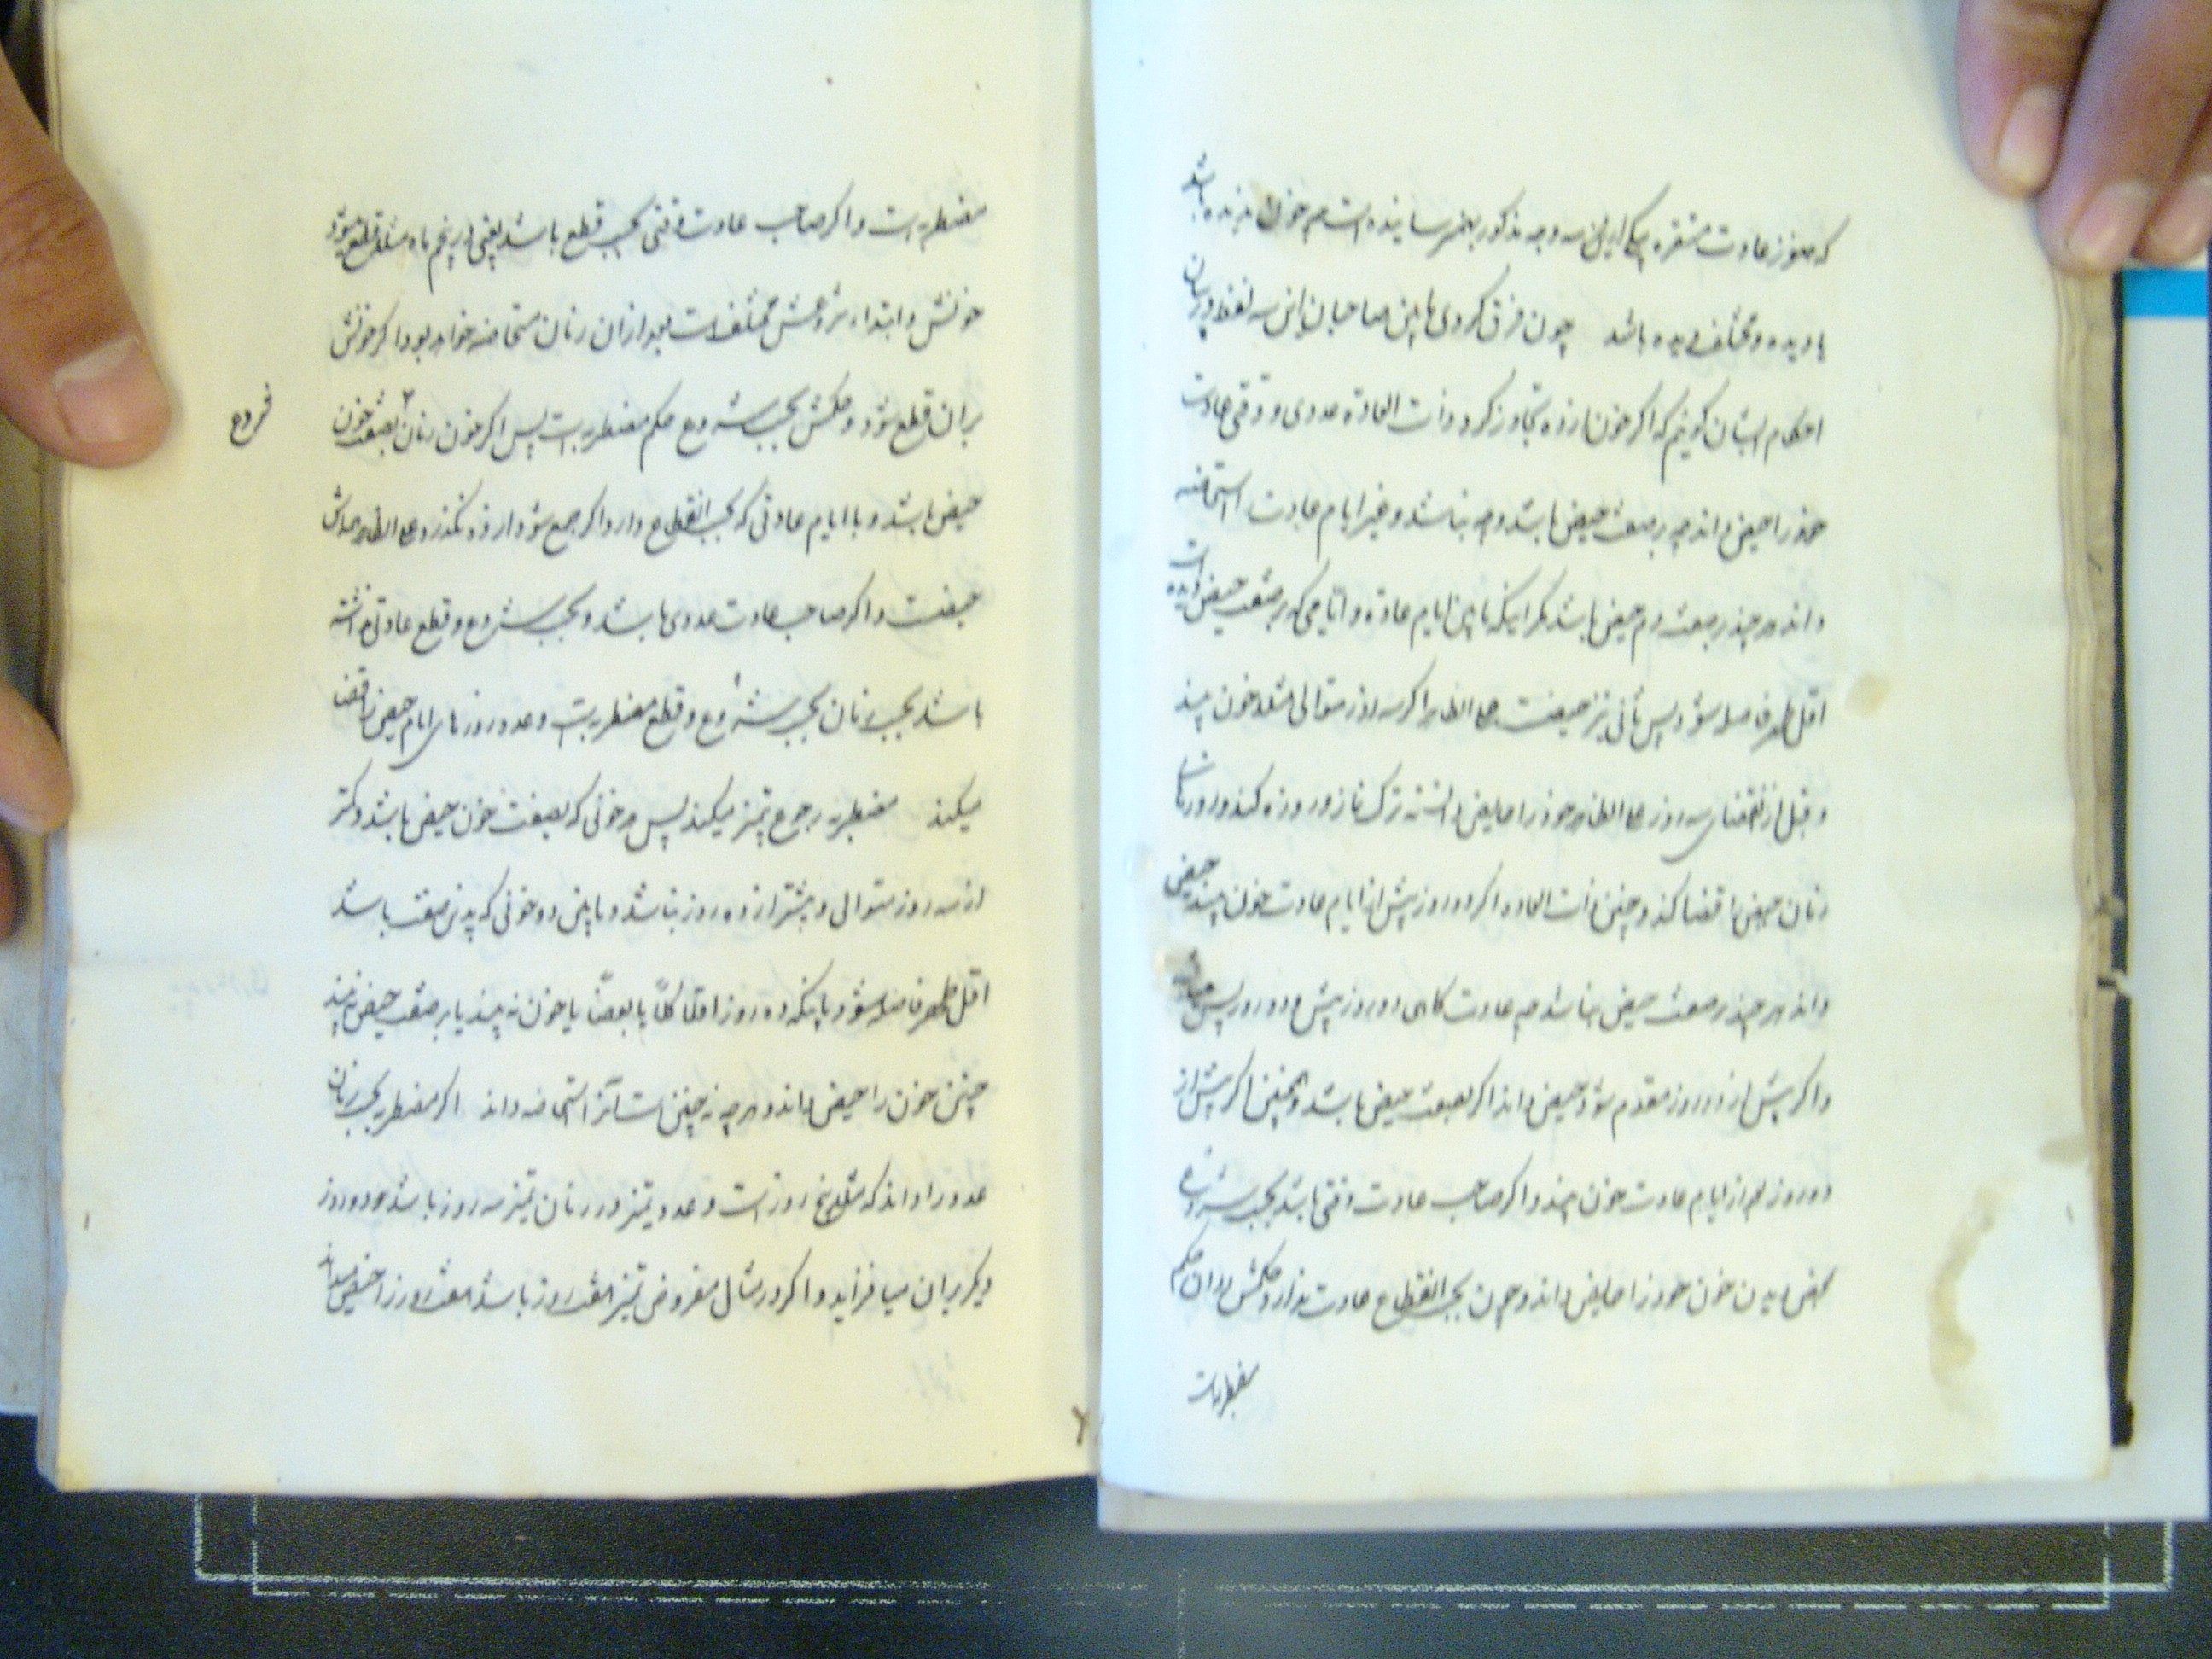 که هنوز عادت مستقره بیکی از این سه وجه مذکور بهم نرسانیده است چه خون ندیده باشد
یا دیده و مختلف دیده باشد چون فرق کردی مابین صاحبان این سه لفظ در بیان
احکام ایشان گوئیم که اگر خون از ده تجاوز کرد ذات العادة عددی و وقتی عادت
خود را حیض داند چه بر صفت حیض باشد و چه نباشد و غیر ایام عادت استحاضه
داند هر چند بر صفت دم حیض باشد مگر اینکه مابین ایام عادة و ایامی که بر صفت حیض دیده است
اقل طهر فاصله شود پس ثانی نیز حیضست علی الظاهر اگر سه روز متوالی مثلا خون بیند
و قبل از انقضای سه روز علی الظاهر خود را حایض دانسته ترک نماز و روزه کند و روزهای
زنان حیض را قضا کند و چنین ذات العاده اگر دو روز پیش از ایام عادت خون بیند حیض
داند هر چند بر صفت حیض نباشد چه عادت گاهی دو روز پیش و دو روز پس میباشد
و اگر پیش از دو روز مقدم شود حیض داند اگر بصفت حیض باشد و همچنین اگر پیش از
دو روز بعد از ایام عادت خون بیند و اگر صاحب عادت وقتی باشد بحسب شروع
بمحض دیدن خون خود را حایض داند و چون بحسب انقطاع عادت ندارد حکمش در آن حکم
مضطربه است
مضطربه است و اگر صاحب عادت وقتی بحسب قطع باشد یعنی در پنجم ماه مثلا قطع میشود
خونش و ابتداء شروعش مختلف است بعد از آن زنان مستحاضه خواهد بود اگر خونش
بر آن قطع شود و حکمش بحسب شروع حکم مضطربه است پس اگر خون زنان بصفت خون
شروع
حیض باشد و با ایام عادتی که بحسب انقطاع دارد اگر جمع شود از ده نگذرد علی الظاهر همه اش
حیضست و اگر صاحب عادت عددی باشد و بحسب شروع و قطع عادتی نداشته
باشد بحسب زنان بحسب شروع و قطع مضطربه است و عدد روزهای ایام حیض را قضا
میکند مضطربه رجوع بتمیز میکند پس هر خونی که بصفت خون حیض باشد و کمتر
از سه روز متوالی و بیشتر از ده روز نباشد و مابین دو خونی که بدین صفت باشد
اقل طهر فاصله شود باینکه ده روز اقلا کلاً یا بعضاً یا خون نه بیند یا بر صفت حیض نه بیند
چنین خون را حیض داند و هر چه نه چنین است آنرا استحاضه داند اگر مضطربه بحسب زنان
عدد را داند که مثلا پنج روز است و عدد تمیز در زنان تمیز سه روز باشد دو روز
دیگر بر آن میافزاید و اگر در مثال مفروض تمیز هفت روز باشد هفت روز را حیض میداند